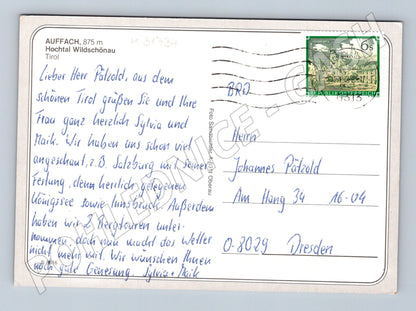 AUFFACH, 875 m
Hochtal Wildschönau
Tirol
Lieber Herr Pätzold, aus dem
schönen Tirol grüßen Sie und Ihre
Frau ganz herzlich Sylvia und
Maik. Wir haben uns schon viel
angeschaut, z.B. Salzburg mit seiner
Festung, den herrlich gelegenen
Königssee sowie Innsbruck. Außerdem
haben wir Bergtouren unter-
nommen, doch nun macht das Wetter
nicht mehr mit. Wir wünschen Ihnen
noch gute Genesung. Sylvia + Maik
BRD
Herrn
Johannes Pätzold
Am Hang 34 16-04
O-8029 Dresden
6 S
REPUBLIK ÖSTERREICH
POHLEDNICE